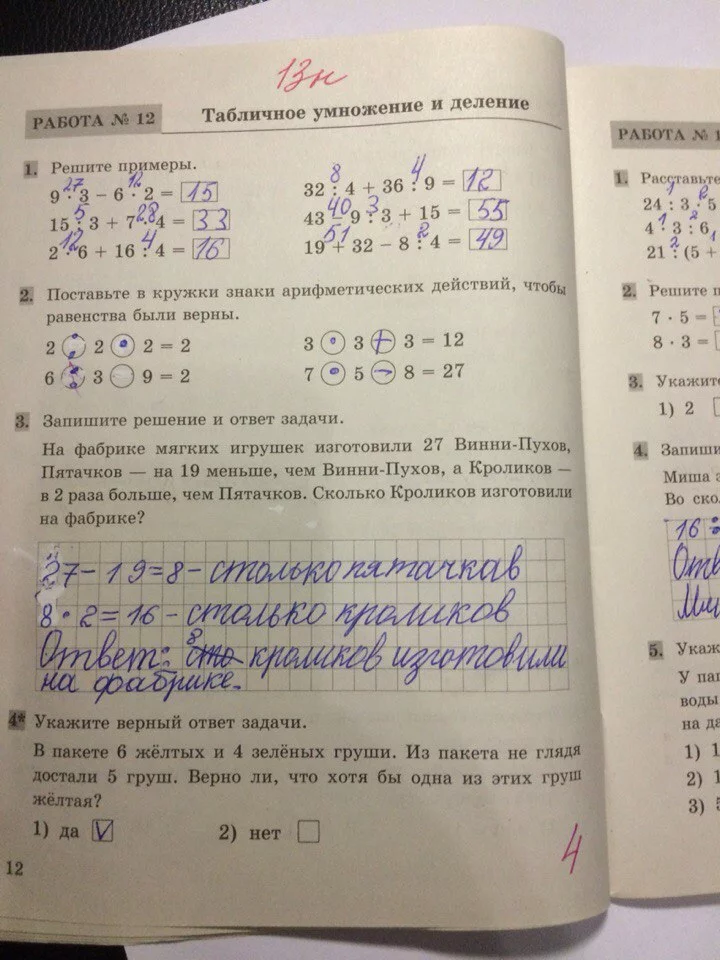 13н
РАБОТА № 12 Табличное умножение и деление
1. Решите примеры.
27 12
9 · 3 − 6 · 2 = 15
5 28
15 : 3 + 7 · 4 = 33
12 4
2 · 6 + 16 : 4 = 16
8 4
32 : 4 + 36 : 9 = 12
40 3
43 − 9 : 3 + 15 = 55
51 2
19 + 32 − 8 : 4 = 49
2. Поставьте в кружки знаки арифметических действий, чтобы
равенства были верны.
2 : 2 · 2 = 2
6 3 9 = 2
3 · 3 + 3 = 12
7 · 5 − 8 = 27
3. Запишите решение и ответ задачи.
На фабрике мягких игрушек изготовили 27 Винни-Пухов,
Пятачков — на 19 меньше, чем Винни-Пухов, а Кроликов —
в 2 раза больше, чем Пятачков. Сколько Кроликов изготовили
на фабрике?
27 − 19 = 8 − столько пятачкав
8 · 2 = 16 − столько кроликов
Ответ: 8 кроликов изготовили
на фабрике.
4* Укажите верный ответ задачи.
В пакете 6 жёлтых и 4 зелёных груши. Из пакета не глядя
достали 5 груш. Верно ли, что хотя бы одна из этих груш
жёлтая?
1) да V 2) нет
4
12
РАБОТА № 1
1. Расставьте
1 2
24 : 3 · 5
2
4 · 3 : 6
2 1
21 : (5 +
2. Решите п
7 · 5 =
8 · 3 =
3. Укажит
1) 2
4. Запиши
Миша з
Во ско
16 :
Отв
5. Укаж
У па
воды
на да
1) 1
2) 1
3) 5